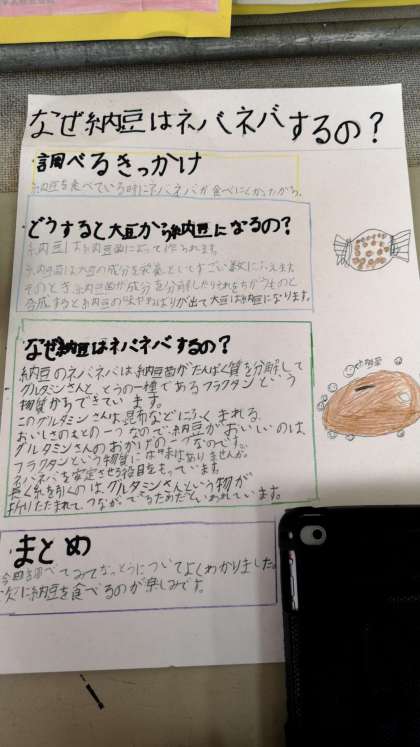 なぜ納豆はネバネバするの？
調べるきっかけ
納豆を食べている時にネバネバが食べにくかったから。
どうすると大豆から納豆になるの？
納豆は納豆菌によって作られます。
納豆菌は大豆の成分を栄養としてすごい数にふえます
そのとき納豆菌が成分を分解したりそれをちがうものと
合成すると納豆の味やねばりが出て大豆は納豆になります。
なぜ納豆はネバネバするの？
納豆のネバネバは納豆菌がたんぱく質を分解して
グルタミンさんと、とうの一種であるフラクタンという
物質からできています。
このグルタミンさんは昆布などにふくまれる、
おいしさのもとの一つなので、納豆がおいしいのは、
グルタミンさんのおかげの一つなのです。
フラクタンという物質には味はありませんが、
ネバネバを安定させる役目をもっています。
長く糸を引くのは、グルタミンさんという物が
折りたたまれてつながってできるためだといわれています。
まとめ
今回調べてみてなっとうについてよくわかりました。
次に納豆を食べるのが楽しみです。